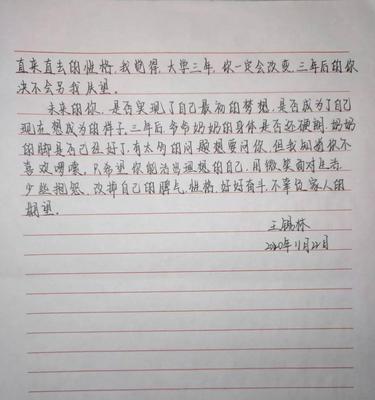 直来直去的性格,我觉得,大学三年,你一定会改变,三年后的你
决不会另我失望。
未来的你,是否实现了自己最初的梦想,是否成为了自己
现在想成为的样子,三年后,爷爷奶奶的身体是否还硬朗,奶奶
的脚是否已经好了,有太多的问题想要问你,但我知道你不
喜欢啰嗦,只希望你能活出理想的自己,用微笑面对生活,
少些抱怨,改掉自己的脾气,性格,好好奋斗,不辜负家人的
期望。
王锡林
2020年11月22日